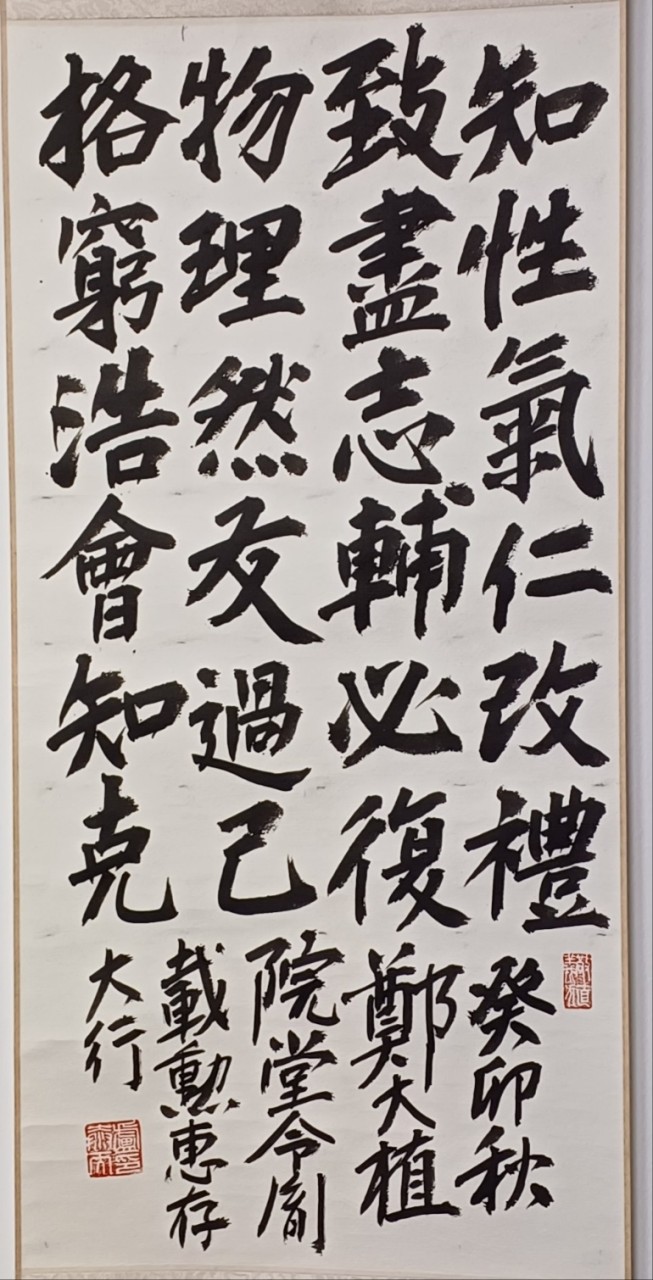 格物致知
窮理盡性
浩然志氣
會友輔仁
知過必改
克己復禮
癸卯秋
鄭大植
院堂令胤
載勳惠存
大行